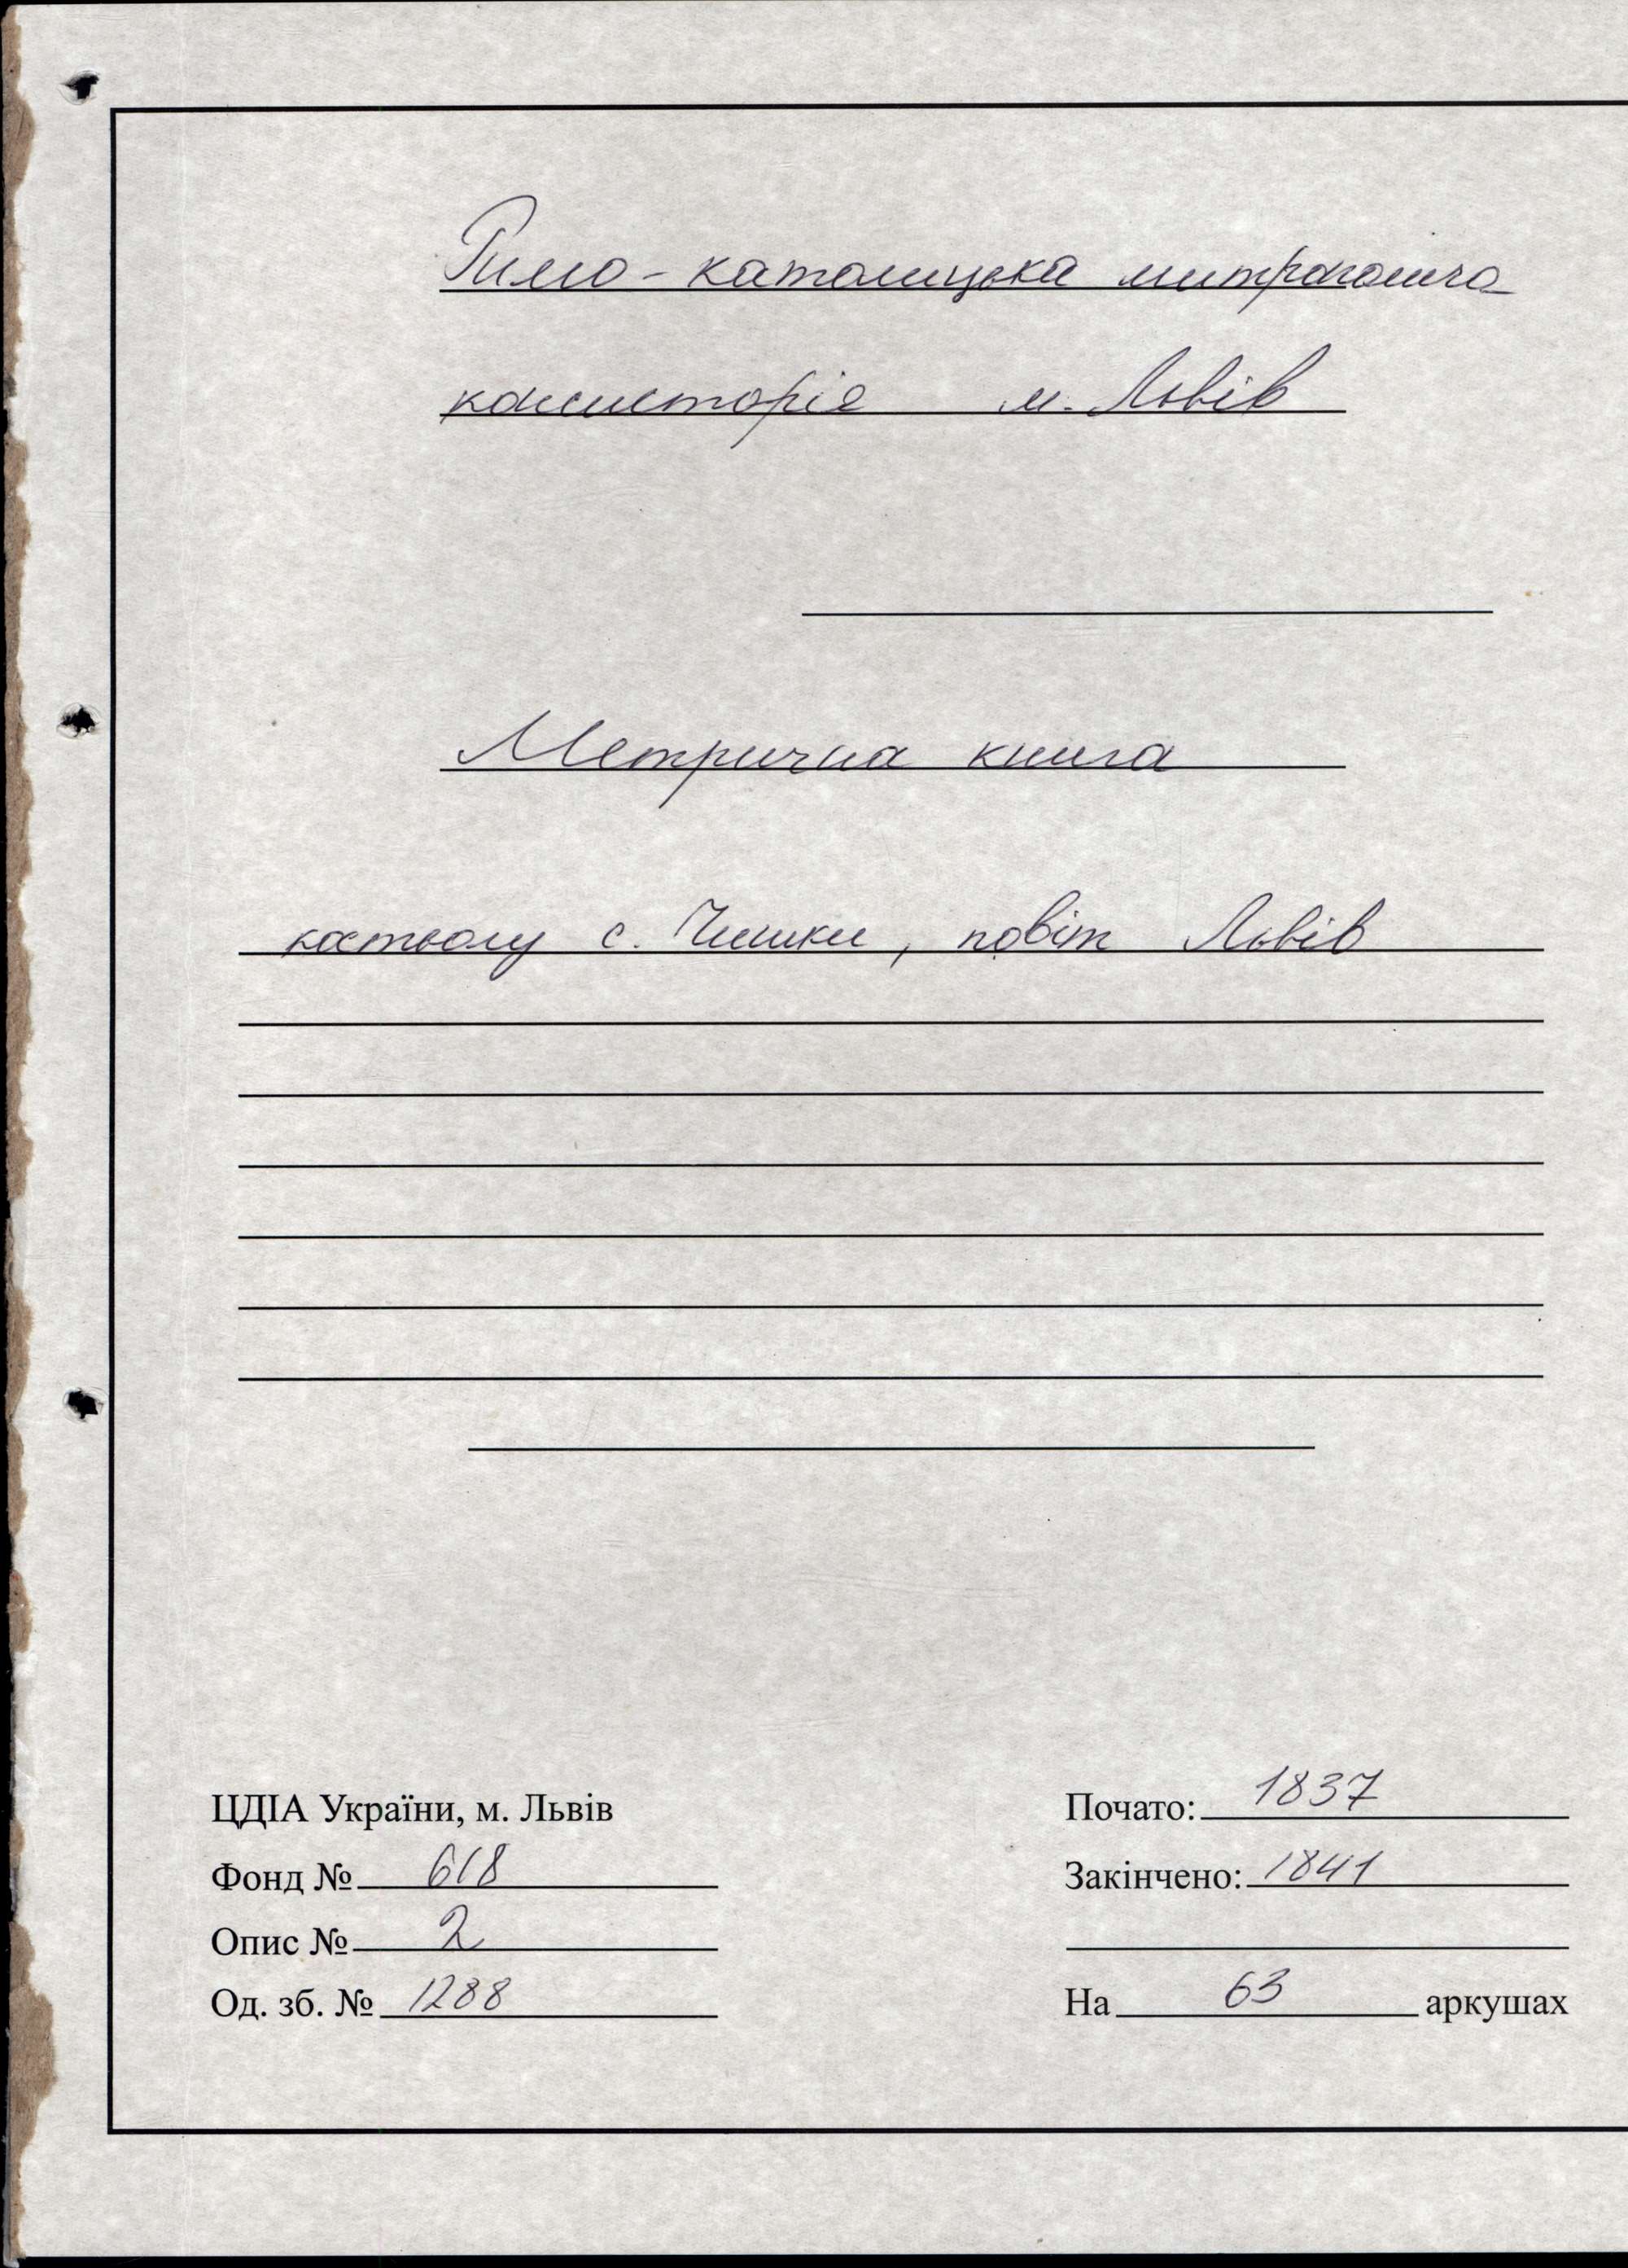 Римо-католицька митрополича
консисторія м. Львів
Метрична книга
костьолу с. Чишки, повіт Львів
ЦДІА України, м. Львів
Фонд № 618
Опис № 2
Од. зб. № 1288
Почато: 1837
Закінчено: 1841
На 63 аркушах